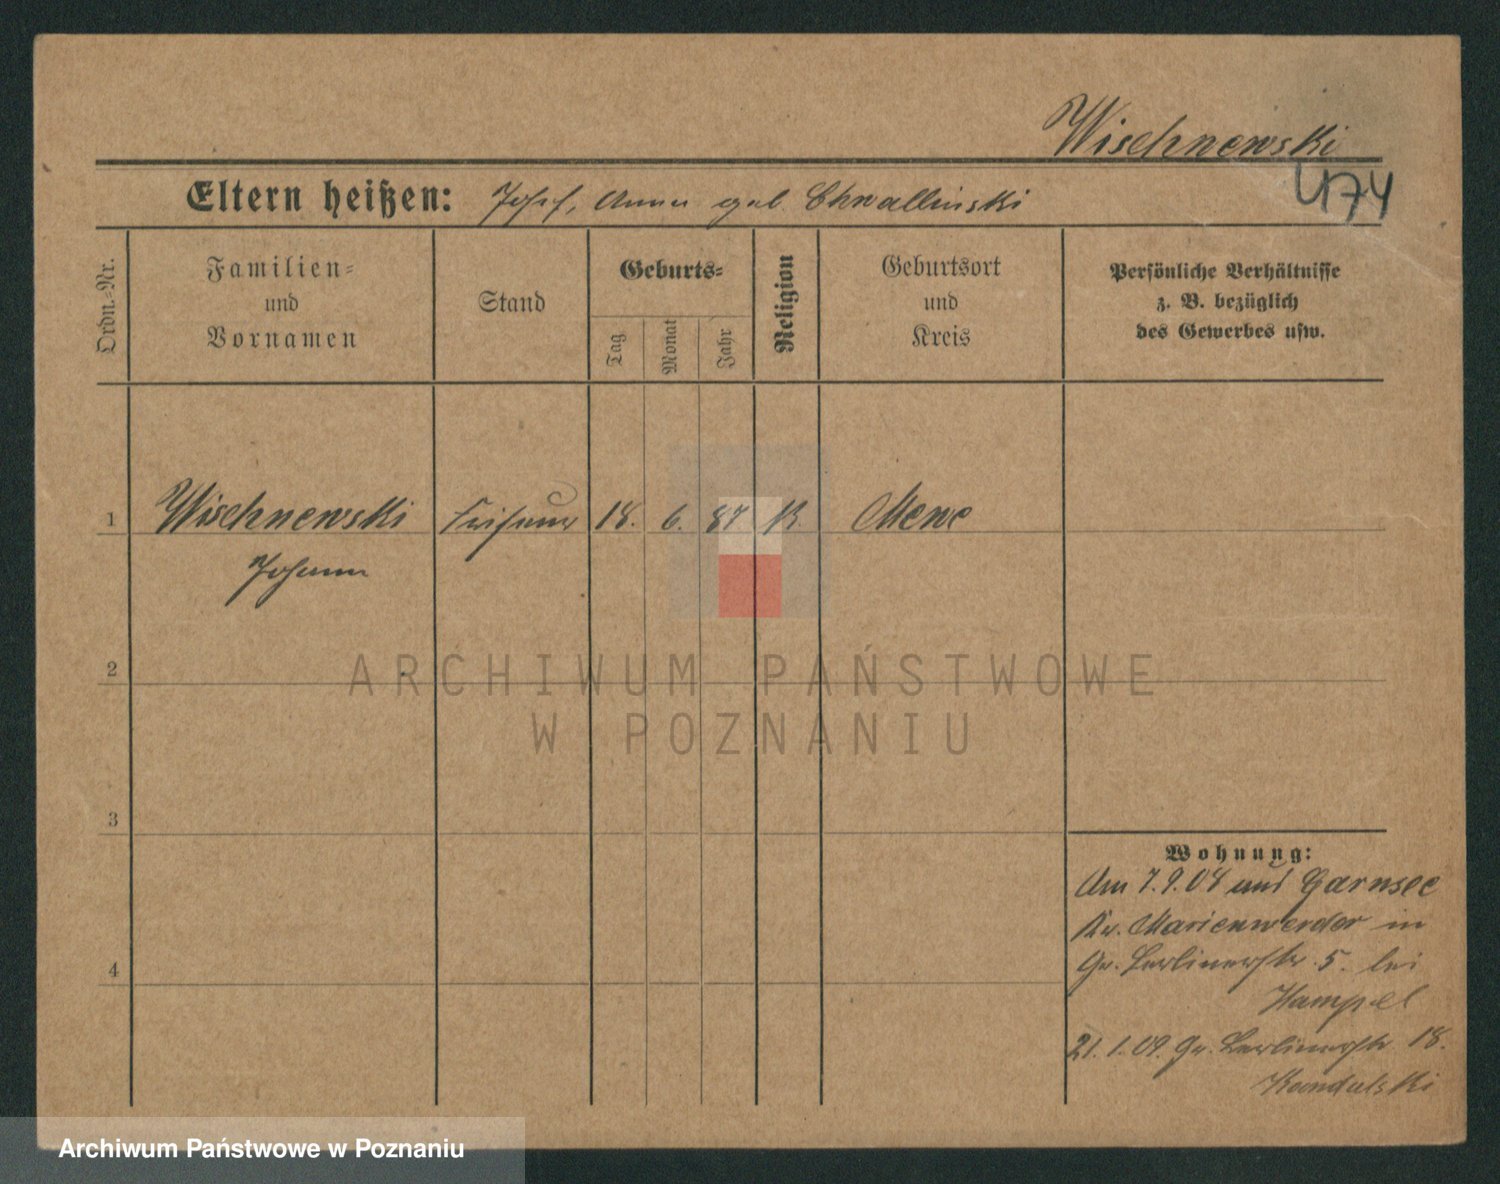 Wischnewski
4174
Eltern heißen: Josef, Anna geb. Chwallinski
Ordn.-Nr.
Familien-
und
Vornamen
Stand
Geburts-
Tag
Monat
Jahr
Religion
Geburtsort
und
Kreis
Persönliche Verhältnisse
z. B. bezüglich
des Gewerbes usw.
1 Wischnewski Friseur 18. 6. 87 K. Mewe
Johann
2
ARCHIWUM PAŃSTWOWE
W POZNANIU
3
4
Wohnung:
Am 7.9.08 aus Garnsee
Kr. Marienwerder in
Gr. Berlinerstr. 5. bei
Hampel
21.1.09. Gr. Berlinerstr. 18.
Kandulski
Archiwum Państwowe w Poznaniu